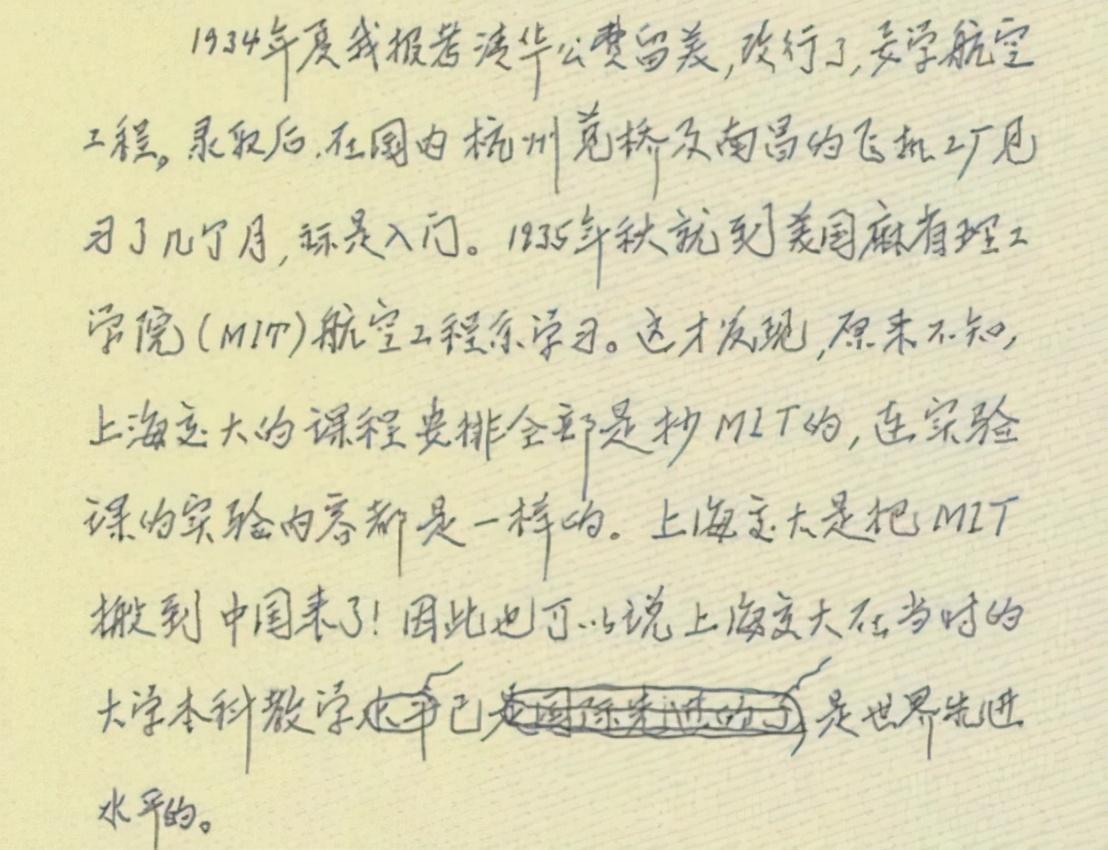 1934年夏我报考清华公费留美,改行了,要学航空
工程。录取后.在国内杭州笕桥及南昌的飞机工厂见
习了几个月,标是入门。1935年秋就到美国麻省理工
学院(MIT)航空工程系学习。这才发现,原来不知,
上海交大的课程安排全部是抄MIT的,连实验
课的实验内容都是一样的。上海交大是把MIT
搬到中国来了!因此也可以说上海交大在当时的
大学本科教学水平已是国际先进的了是世界先进
水平的。